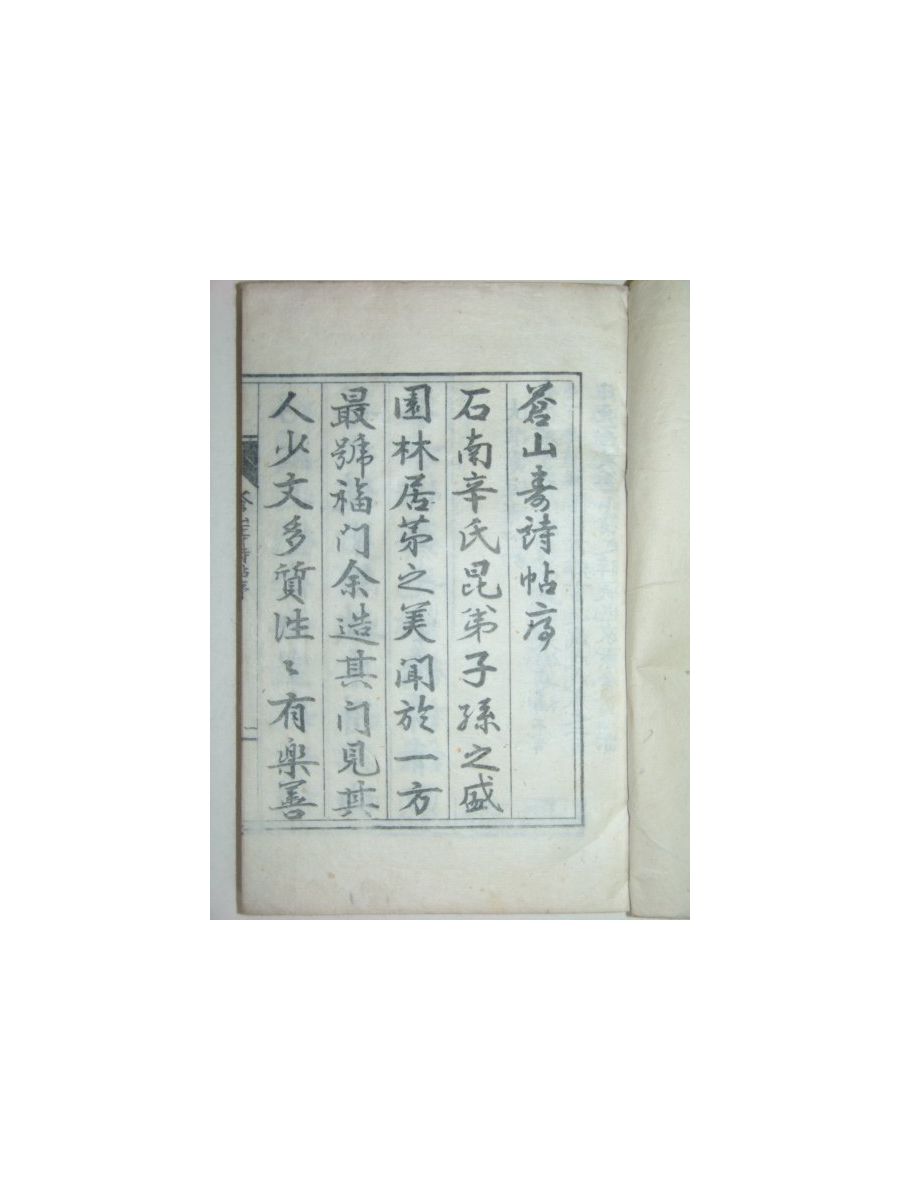 蒼山壽詩帖序
石南辛氏昆弟子孫之盛
園林居茅之美聞於一方
最號福門余造其門見其
人少文多質性〻有樂善